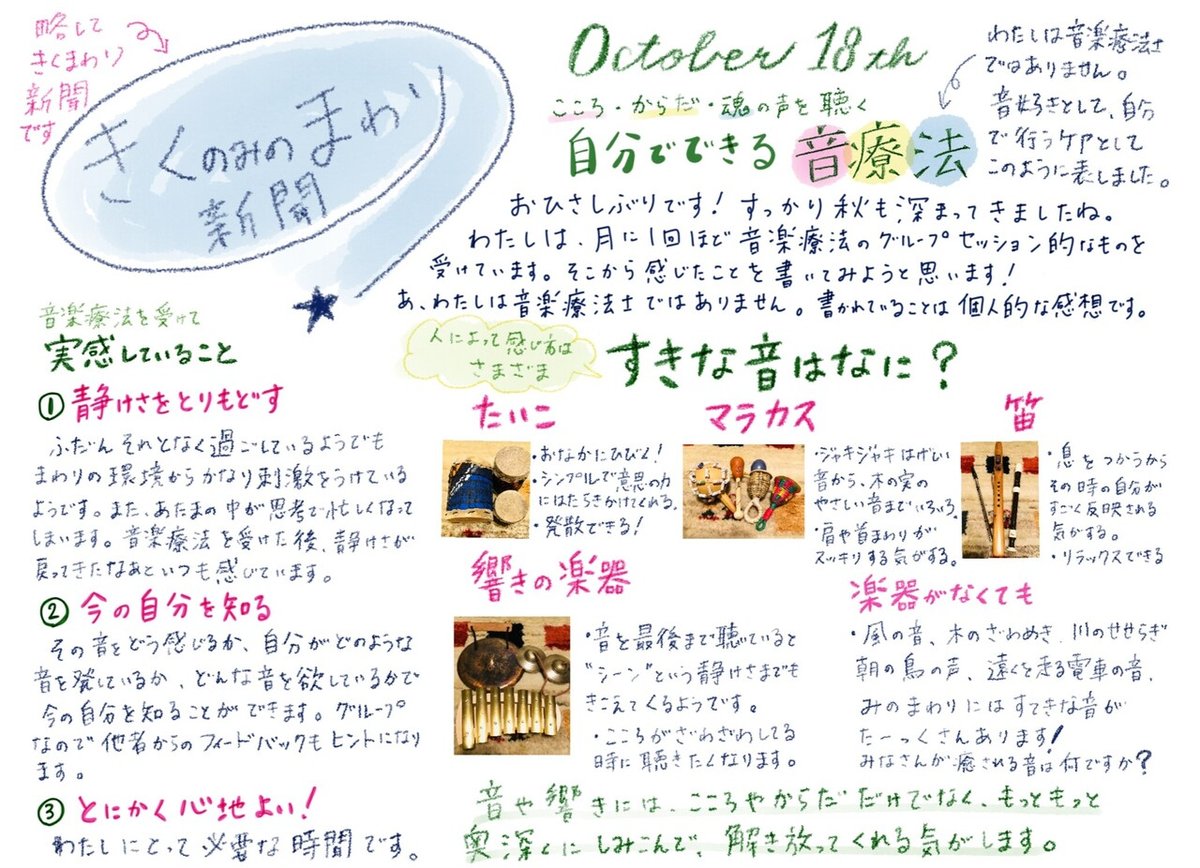 略して
きくまわり
新聞
です
きくのみのまわり
新聞
October 18th
こころ・からだ・魂の声を聴く
自分でできる音療法
わたしは音楽療法士
ではありません。
音好きとして、自分
で行うケアとして
このように表しました。
おひさしぶりです!すっかり秋も深まってきましたね。
わたしは、月に1回ほど音楽療法のグループセッション的なものを
受けています。そこから感じたことを書いてみようと思います!
あ、わたしは音楽療法士ではありません。書かれていることは個人的な感想です。
音楽療法を受けて
実感していること
①静けさをとりもどす
ふだんそれとなく過ごしているようでも
まわりの環境からかなり刺激をうけている
ようです。また、あたまの中が思考で忙しくなって
しまいます。音楽療法を受けた後、静けさが
戻ってきたなあといつも感じています。
②今の自分を知る
その音をどう感じるか、自分がどのような
音を発しているか、どんな音を欲しているかで
今の自分を知ることができます。グループ
なので他者からのフィードバックもヒントになり
ます。
③とにかく心地よい!
わたしにとって必要な時間です。
人によって感じ方は
さまざま
すきな音はなに?
たいこ
・おなかにひびく!
・シンプルで意思の力
にはたらきかけてくれる。
・発散できる!
マラカス
・ジャキジャキはげしい
音から、木の実の
やさしい音までいろいろ。
・肩や首まわりが
スッキリする気がする。
笛
・息をつかうから
その時の自分が
すごく反映される
気がする。
・リラックスできる
響きの楽器
・音を最後まで聴いていると
"シーン"という静けさまでも
きこえてくるようです。
・こころがざわざわしてる
時に聴きたくなります。
楽器がなくても
・風の音、木のざわめき、川のせせらぎ
朝の鳥の声、遠くを走る電車の音、
みのまわりにはすてきな音が
たーっくさんあります!
みなさんが癒される音は何ですか?
音や響きには、こころやからだだけでなく、もっともっと
奥深くにしみこんで、解き放ってくれる気がします。